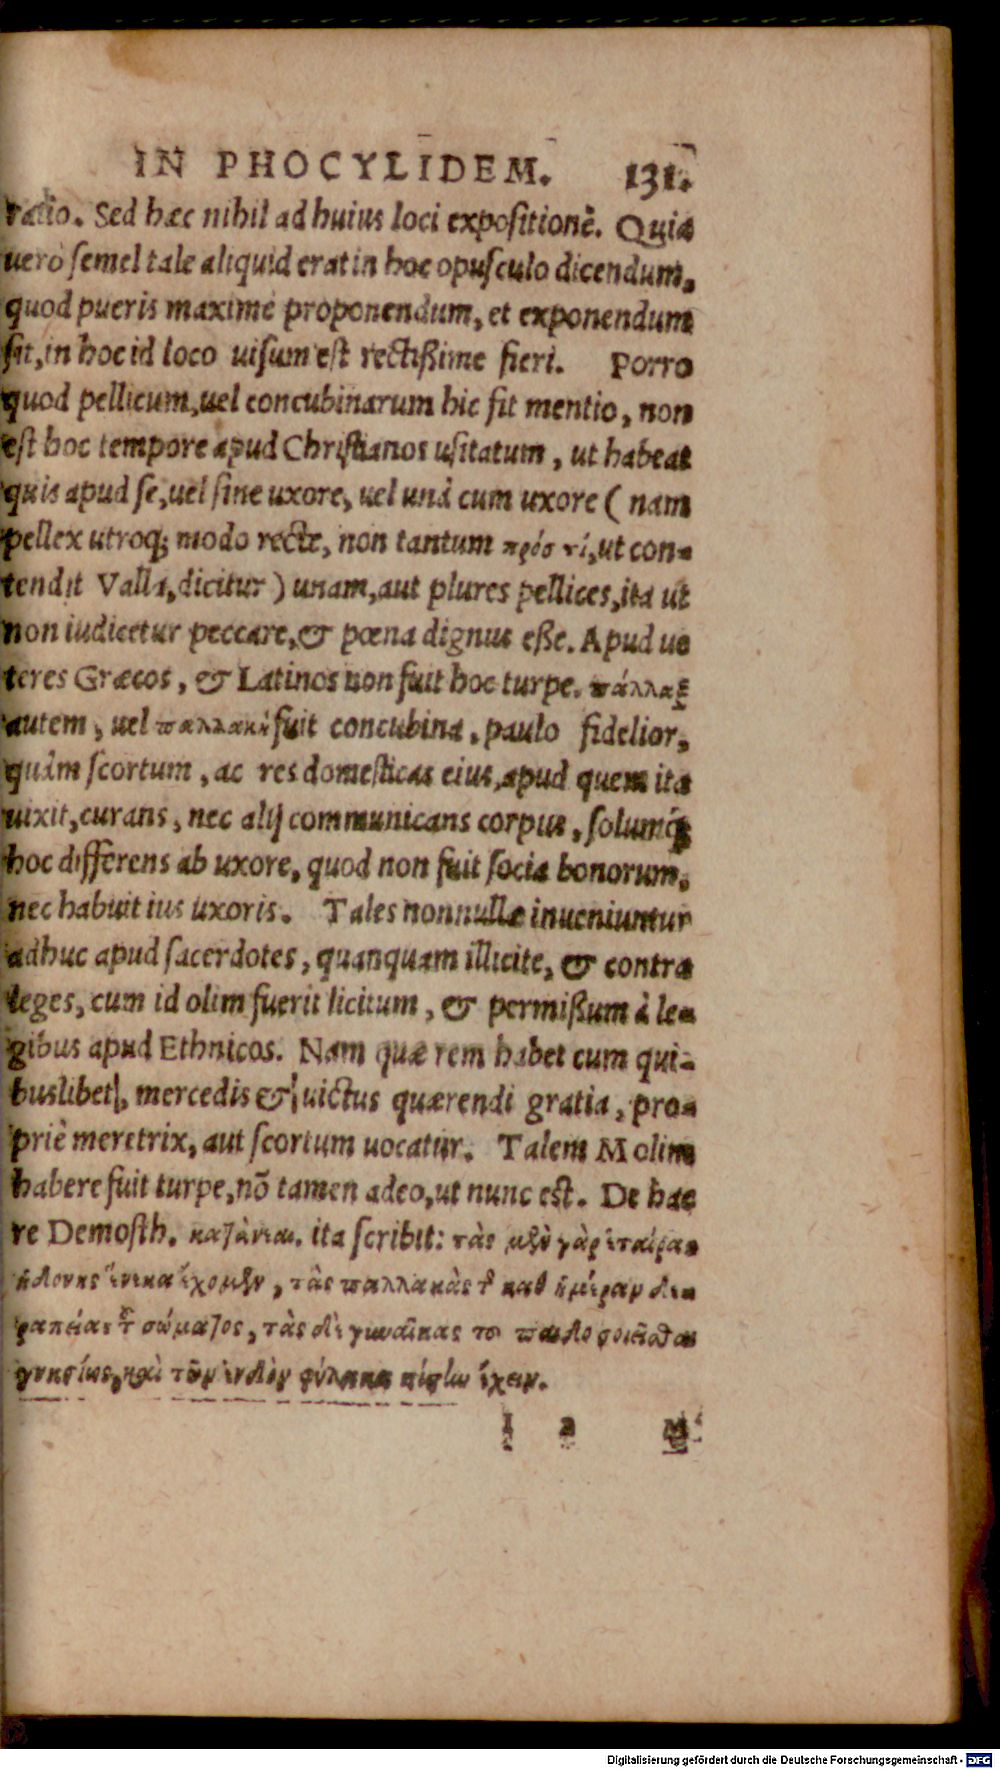 IN PHOCYLIDEM. 131.
ratio. Sed hæc nihil ad huius loci expositionē. Quia
uero semel tale aliquid erat in hoc opusculo dicendum,
quod pueris maxime proponendum, et exponendum
sit, in hoc id loco uisum est rectißime fieri. Porro
quod pellicum, uel concubinarum hic fit mentio, non
est hoc tempore apud Christianos usitatum, ut habeat
quis apud se, uel sine uxore, uel unà cum uxore ( nam
pellex utroq; modo recte, non tantum πρόσ τί, ut con-
tendit Valla, dicitur ) unam, aut plures pellices, ita ut
non iudicetur peccare, & pœna dignus eße. Apud ue
teres Græcos, & Latinos non fuit hoc turpe. πάλλαξ
autem, uel παλλακὴ fuit concubina, paulo fidelior,
quàm scortum, ac res domesticas eius, apud quem ita
uixit, curans, nec alij communicans corpus, solumq́;
hoc differens ab uxore, quod non fuit socia bonorum,
nec habuit ius uxoris. Tales nonnullæ inueniuntur
adhuc apud sacerdotes, quanquam illicite, & contra
leges, cum id olim fuerit licitum, & permißum à le-
gibus apud Ethnicos. Nam quæ rem habet cum qui-
buslibet, mercedis & uictus quærendi gratia, pro-
priè meretrix, aut scortum uocatur. Talem Molim
habere fuit turpe, nō tamen adeo, ut nunc est. De hac
re Demosth. ita scribit: τὰς μὲν γὰρ ἑταίρας
ἡδονῆς ἕνεκα ἔχομεν, τὰς παλλακὰς τ͂ καθ ἡμέραν θε-
ραπείας τ͂ σώματος, τὰς δὲ γυναῖκας το παιδοποιεῖσθαι
γνησίως, καὶ τῶν ἔνδον φύλακα πίστην ἔχειν.
I 2 M
Digitalisierung gefördert durch die Deutsche Forschungsgemeinschaft - DFG